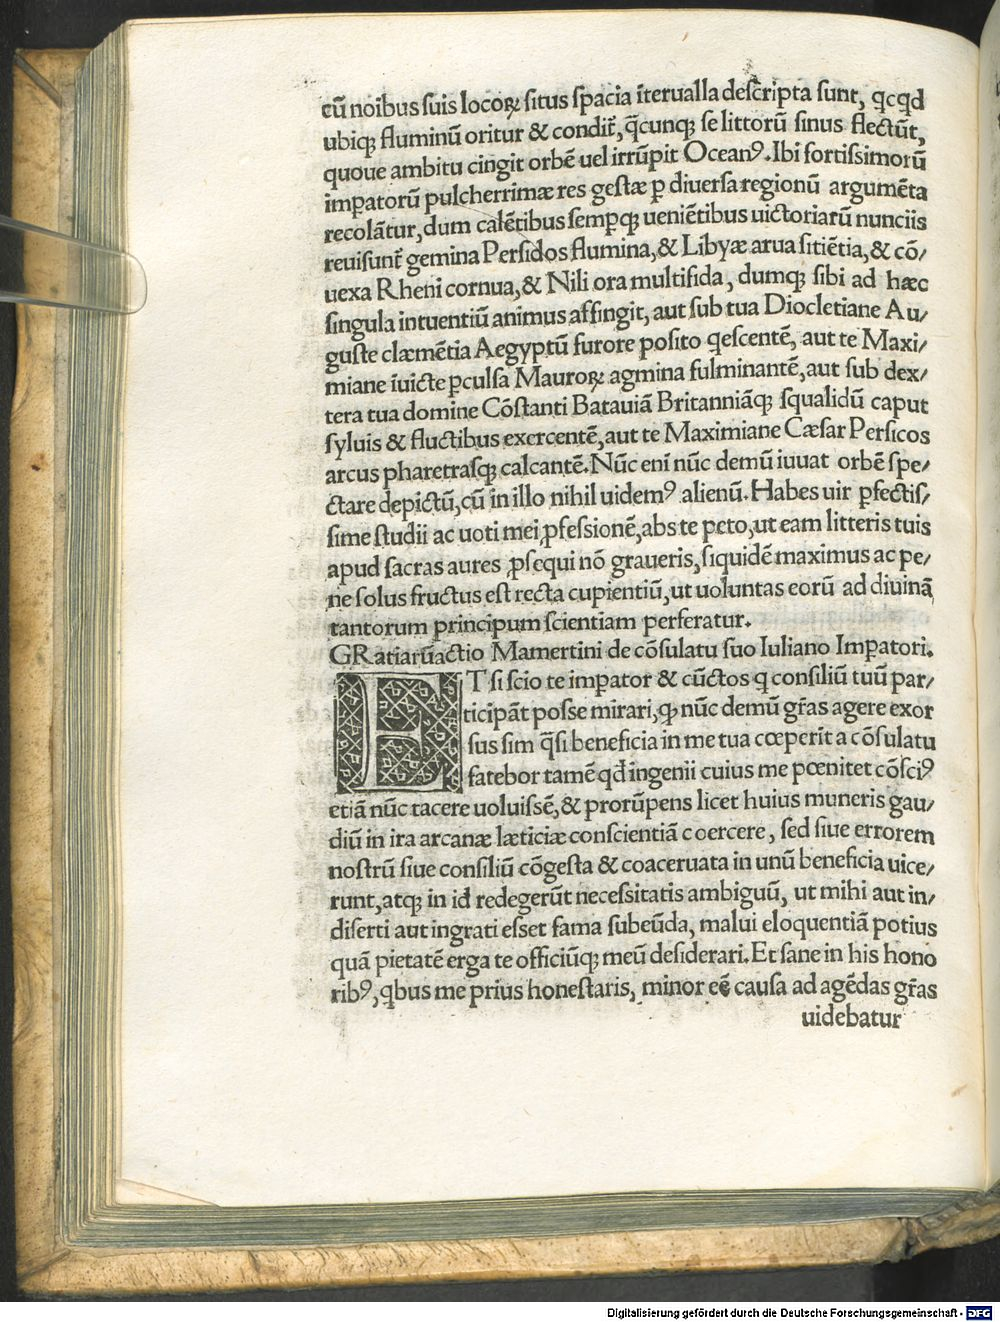 cū noibus suis locoꝝ situs spacia īterualla descripta sunt, qcqd
ubiqꝫ fluminū oritur & condit̃, q̄cunqꝫ se littorū sinus flectūt,
quoue ambitu cingit orbē uel irrūpit Oceanꝰ. Ibi fortissimorū
imꝑatorū pulcherrimæ res gestæ ꝑ diuersa regionū argumēta
recolātur, dum calētibus semꝑqꝫ ueniētibus uictoriarū nunciis
reuisunt̃ gemina Persidos flumina, & Libyæ arua sitiētia, & cō/
uexa Rheni cornua, & Nili ora multifida, dumqꝫ sibi ad hæc
singula intuentiū animus affingit, aut sub tua Diocletiane Au/
guste clæmētia Aegyptū furore posito qescentē, aut te Maxi/
miane īuicte ꝑculsa Mauroꝝ agmina fulminantē, aut sub dex/
tera tua domine Cōstanti Batauiā Britanniāqꝫ squalidū caput
syluis & fluctibus exercentē, aut te Maximiane Cæsar Persicos
arcus pharetrasqꝫ calcantē. Nūc eni nūc demū iuuat orbē spe/
ctare depictū, cū in illo nihil uidemꝰ alienū. Habes uir ꝑfectis/
sime studii ac uoti mei ꝓfessionē, abs te peto, ut eam litteris tuis
apud sacras aures ꝓsequi nō graueris, siquidē maximus ac pe/
ne solus fructus est recta cupientiū, ut uoluntas eorū ad diuinā
tantorum principum scientiam perferatur.
GRatiarū actio Mamertini de cōsulatu suo Iuliano Imꝑatori.
ET si scio te imꝑator & cūctos q consiliū tuū par/
ticipāt posse mirari, ꝙ nūc demū gr̃as agere exor
sus sim q̄si beneficia in me tua cœperit a cōsulatu
fatebor tamē qđ ingenii cuius me pœnitet cōsciꝰ
etiā nūc tacere uoluissē, & prorūpens licet huius muneris gau/
diū in ira arcanæ læticiæ conscientiā coercere, sed siue errorem
nostrū siue consiliū cōgesta & coaceruata in unū beneficia uice/
runt, atqꝫ in id redegerūt necessitatis ambiguū, ut mihi aut in/
diserti aut ingrati esset fama subeūda, malui eloquentiā potius
quā pietatē erga te officiūqꝫ meū desiderari. Et sane in his hono
ribꝰ, qbus me prius honestaris, minor eē causa ad agēdas gr̃as
uidebatur
Digitalisierung gefördert durch die Deutsche Forschungsgemeinschaft - DFG